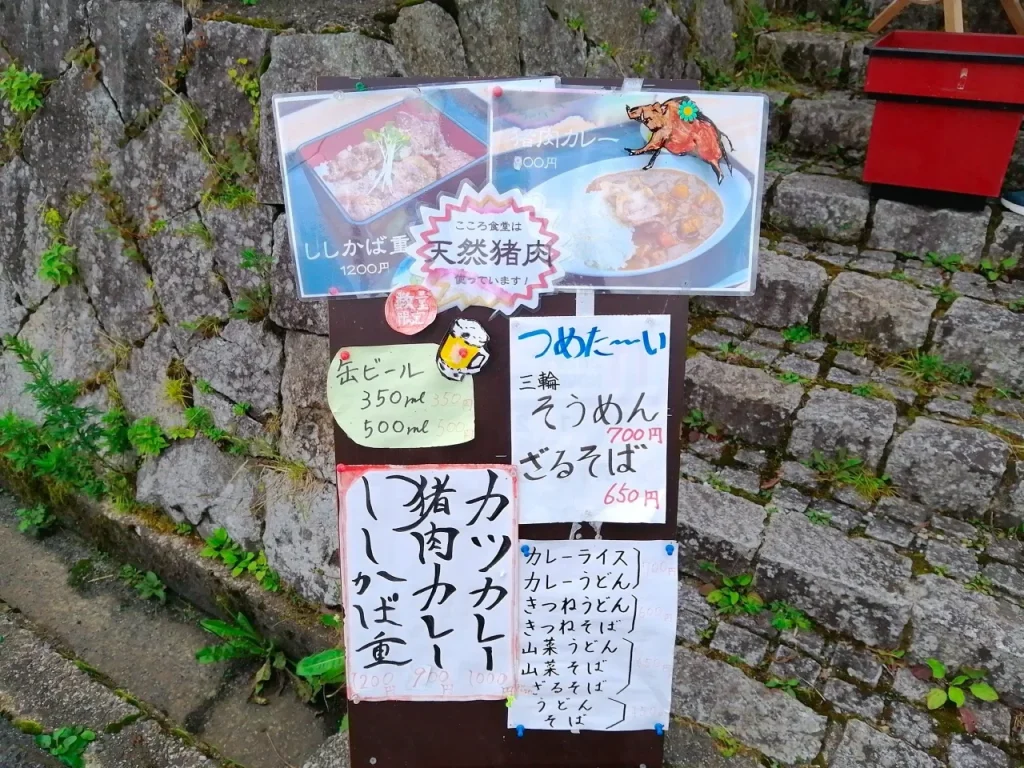 ししかば重
1200円
猪肉カレー
900円
こころ食堂は
天然猪肉
使っています!
数量
限定
缶ビール
350ml 350円
500ml 500円
つめた〜い
三輪
そうめん
700円
ざるそば
650円
カツカレー
1000
猪肉カレー
900円
ししかば重
1200円
カレーライス
カレーうどん
きつねうどん
きつねそば
山菜うどん
山菜そば
ざるそば
うどん
そば